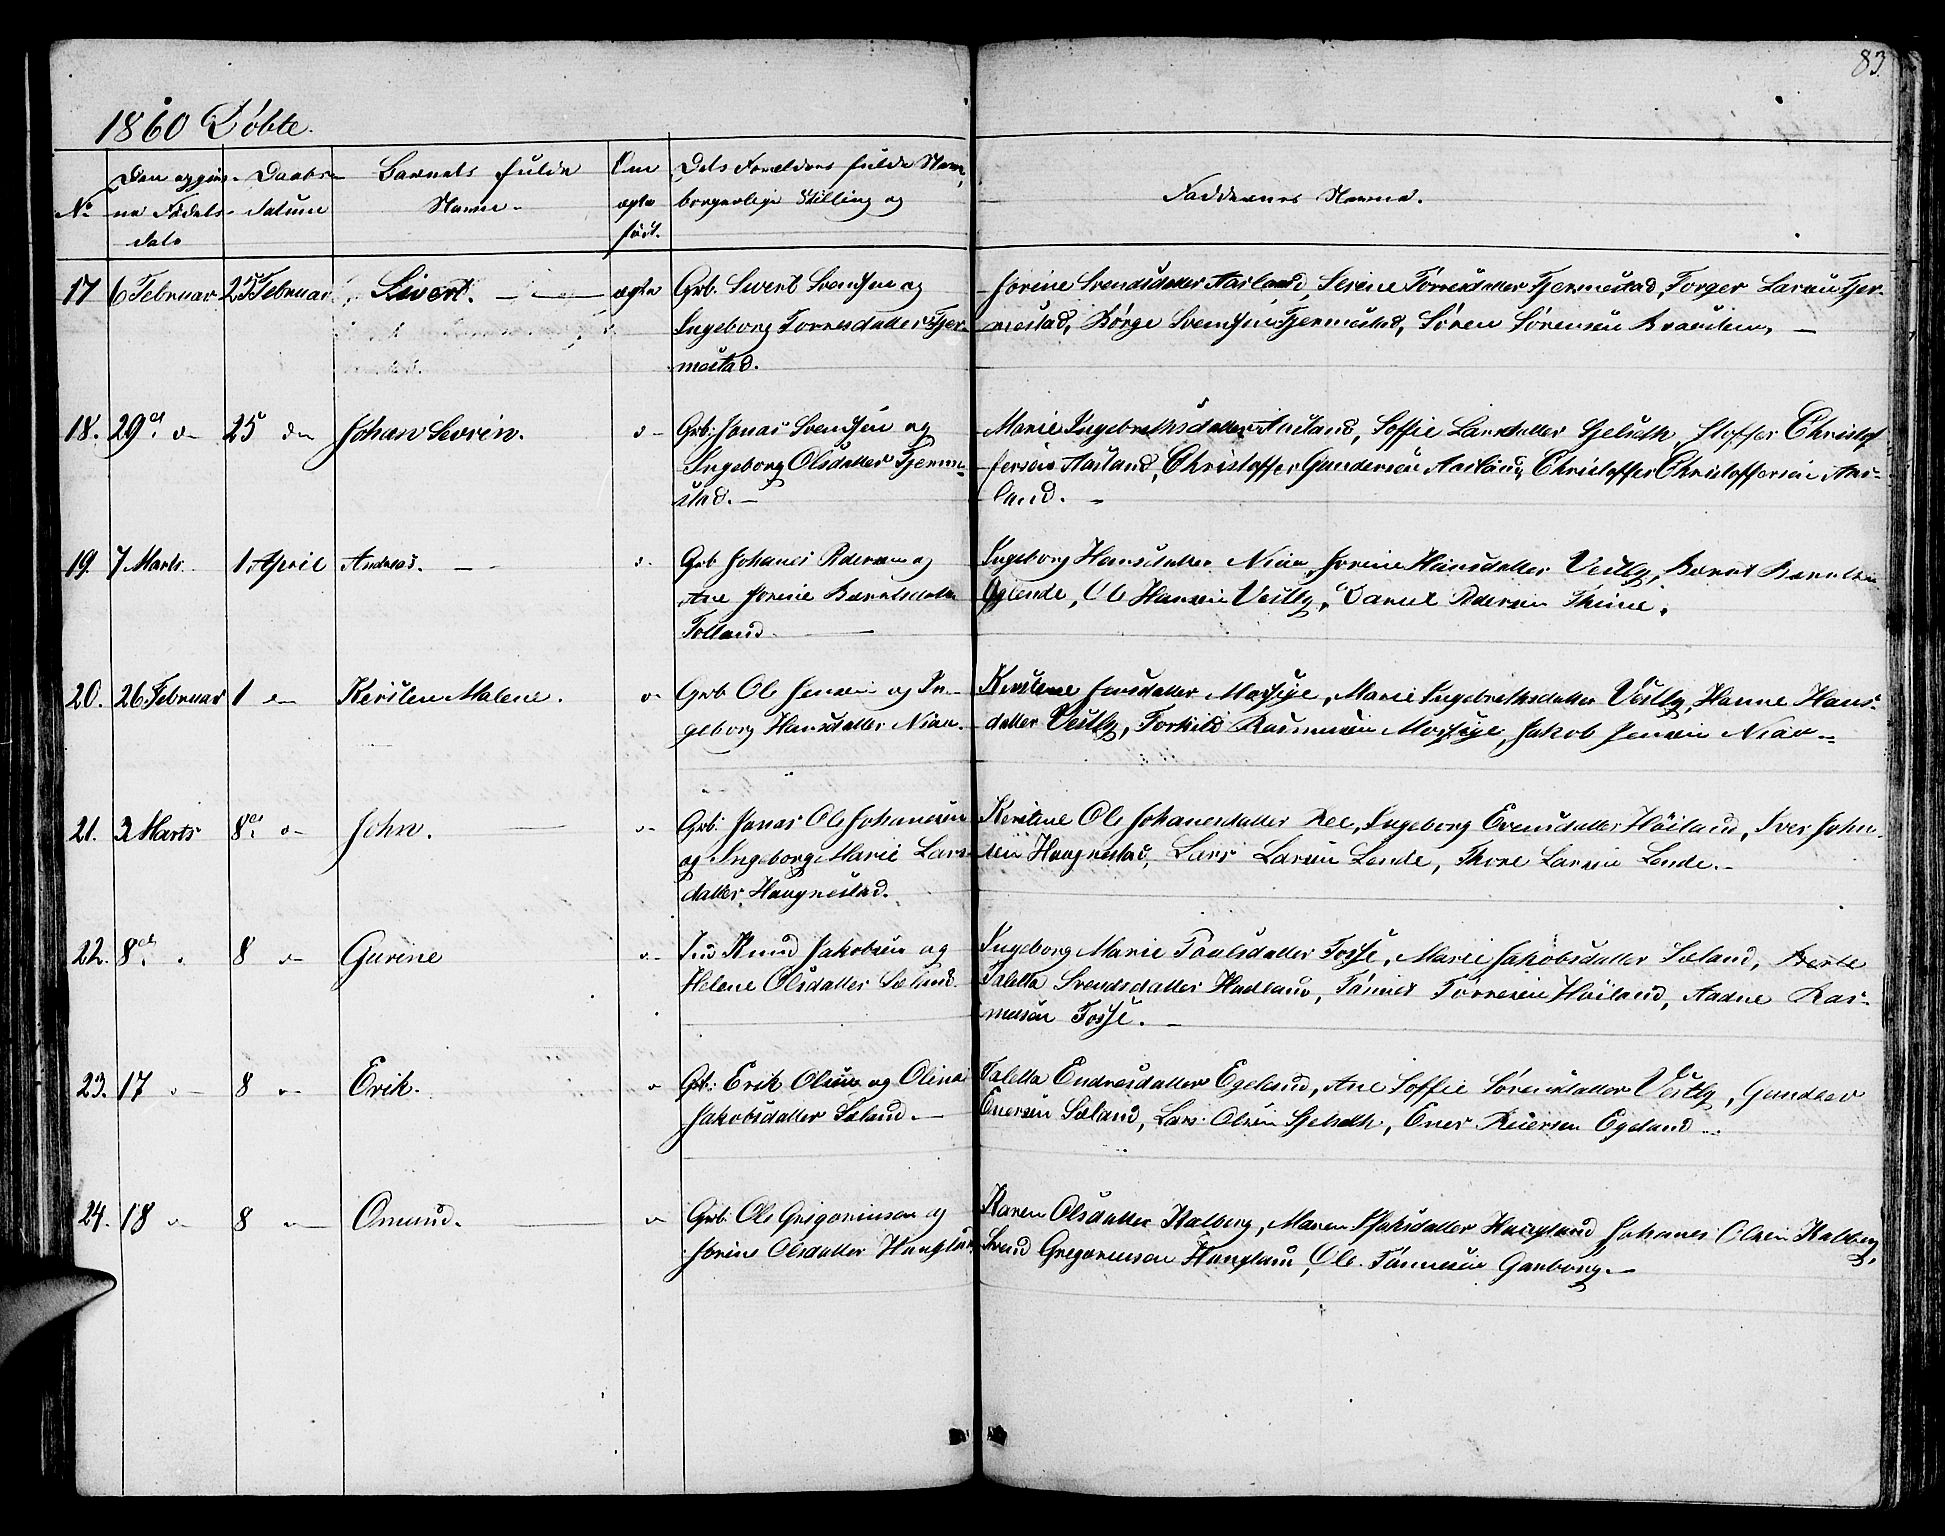 83
1860 Døbte.
No
Den opgiv-
ne Fødsels-
dato
Daabs-
datum
Barnets fulde
Navn.
Om
ægte
født.
Dets Forældres fulde Navn,
borgerlige Stilling og
Faddernes Navne.
17 6 Februar 25 Februar Sivert. ægte Grb. Sivert Svendsen og
Ingeborg Torresdatter Tjer-
mestad.
Jorine Svendsdatter Aarland, Serine Torresdatter Tjermestad, Torger Larsen Tjer-
mestad, Børge Svendsen Tjermestad, Søren Sørensen
18. 29de do 25 do Johan Sevrin. do Grb: Jonas Svendsen og
Ingeborg Olsdatter Tjerme-
stad.
Marie Ingebrethsdatter Aarland, Soffie Larsdatter Sjelseth, Stoffer Christof-
fersen Aarland, Christoffer Gundersen Aarland, Christoffer Christoffersen Aar-
land.
19. 7 Marts 1 April Andreas. do Grb Johanes Pedersen og
Ane Jorine Berntsdatter
Tolland
Ingeborg Hansdatter Niaa, Jorine Hansdatter Vestly, Bernt Berntsen
Øglende, Ole Hansen Vestly, Daniel Pedersen Thime.
20. 26 Februar 1 do Kirsten Malene. do Grb Ole Jensen og In-
geborg Hansdatter Niaa.
Kirstine Jensdatter Mossige, Marie Ingebrethsdatter Vestly, Hanne Hans-
datter Vestly, Torkild Rasmusen Mossige, Jakob Jensen Niaa
21. 3 Marts 8de do John. do Grb. Jonas Ole Johanesen
og Ingeborg Marie Lars-
datter Haugnestad.
Kirstine Ole Johanesdatter Ree, Ingeborg Evensdatter Høiland, Iver John-
sen Haugnestad, Lars Larsen Lende, Thore Larsen Lende.
22. 8de 8 do Gurine do Ind Knud Jakobsen og
Helene Olsdatter Sæland.
Ingeborg Marie Paulsdatter Fosse, Marie Jakobsdatter Sæland,
Taletta Svendsdatter Hadland, Tønnes Tørresen Høiland, Aadne Ras-
musen Fosse.
23. 17 do 8 do Erik. do Grb: Erik Olsen og Olina
Jakobsdatter Sæland.
Taletta Endresdatter Egeland, Ane Soffie Sørensdatter Vestly, Gundver
Enersen Sæland, Lars Olsen Sjelseth, Ener Reiersen Egeland
24. 18 do 8 do Omund. do Grb: Ole Gregoriusen og
Jorine Olsdatter Hauglan
Karen Olsdatter Kalberg, Maren Isaksdatter Haugland, Johanes Olsen Kalberg,
Svend Gregoriusen Haugland, Ole Tønnesen Garborg.